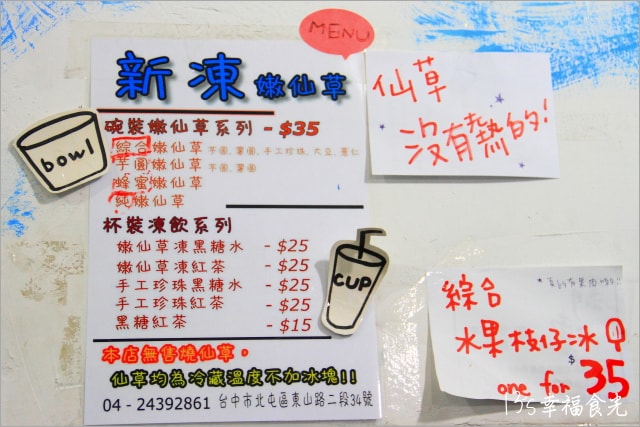 MENU
新凍 嫩仙草
碗裝嫩仙草系列 - $35
綜合嫩仙草 芋圓、薯圓、手工珍珠、大豆、薏仁
芋圓嫩仙草 芋圓、薯圓
蜂蜜嫩仙草
純嫩仙草
bowl
杯裝凍飲系列
嫩仙草凍黑糖水 - $25
嫩仙草凍紅茶 - $25
手工珍珠黑糖水 - $25
手工珍珠紅茶 - $25
黑糖紅茶 - $15
CUP
本店無售燒仙草。
仙草均為冷藏溫度不加冰塊!!
04 - 24392861 台中市北屯區東山路二段34號
仙草
沒有熱的!
綜合
水果枝仔冰
one for $35
135幸福食光